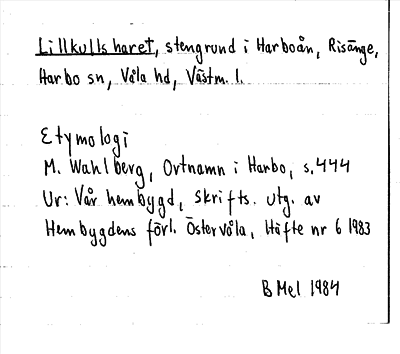 Lillkullsharet, stengrund i Harboån, Risänge,
Harbo sn, Våla hd, Västm. l.
Etymologi
M. Wahlberg, Ortnamn i Harbo, s. 444
Ur: Vår hembygd, Skrifts. utg. av
Hembygdens förl. Östervåla, Häfte nr 6 1983
B Mel 1984